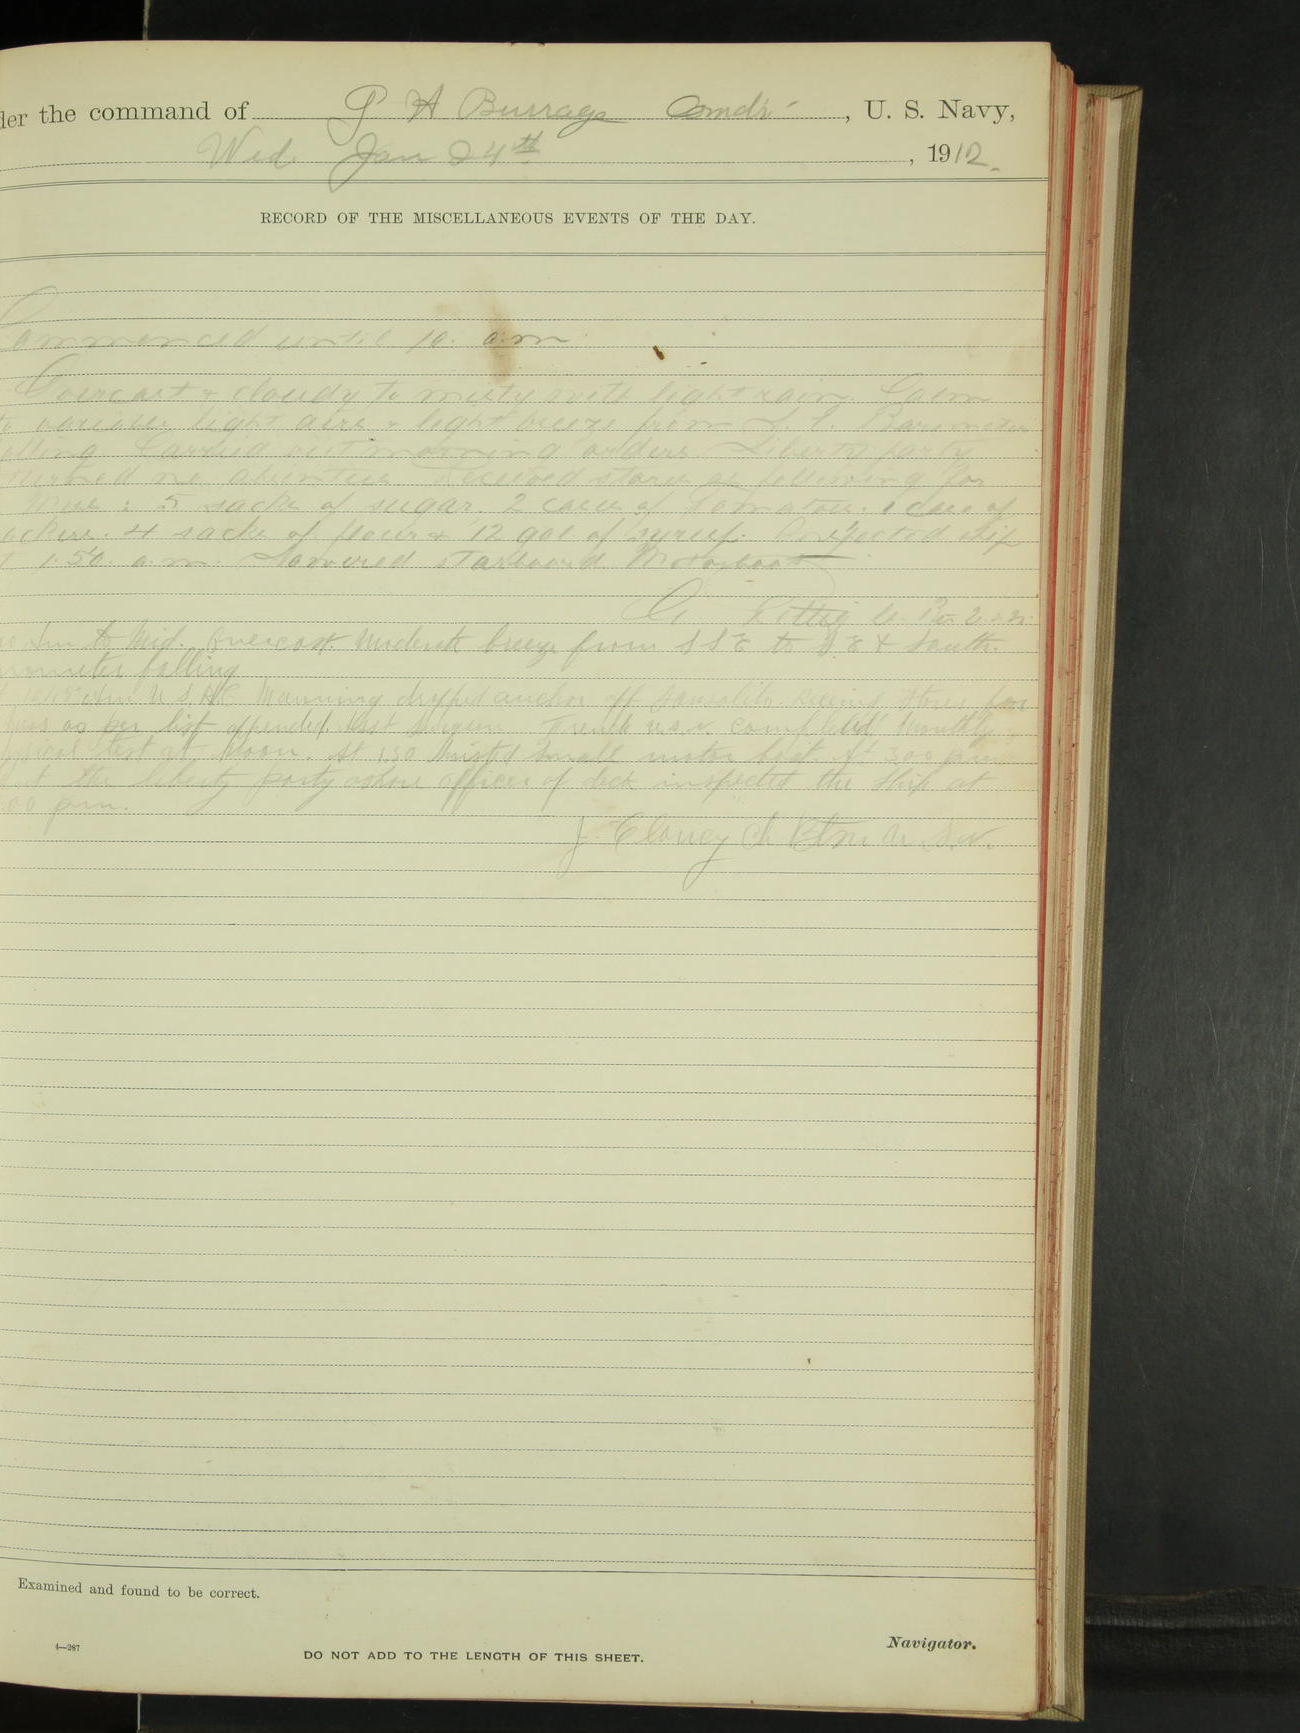 der the command of G H Burrage Comdr , U. S. Navy,
Wed. Jan 24th , 1912.
RECORD OF THE MISCELLANEOUS EVENTS OF THE DAY.
Commenced until 10. a.m
Overcast & cloudy to misty with light rain. Calm
to variable light airs & light breeze from S. E. Barometer
falling. Carried out morning orders. Liberty party
returned no absentees. Received stores as following for
Mess : 5 sacks of sugar. 2 cases of Tomatoes. 1 case of
4 sacks of flour & 12 gal of syrup. Inspected ship
Lowered starboard Motorboat
Am to Mid. Overcast. Moderate breeze from S S E to S E & South.
Barometer falling
Am U S A C Manning dropped anchor off Sausalito. Received Stores for
mess as per list appended. Asst Surgeon French U.S.N. completed monthly
physical test at Noon. At 1 30 hoisted small motor boat. At 3 00 p.m.
the liberty party ashore officer of deck inspected the ship at
00 p.m.
J. Clancy Ch. Btsn. U. S. N.
Examined and found to be correct.
4—287
DO NOT ADD TO THE LENGTH OF THIS SHEET.
Navigator.